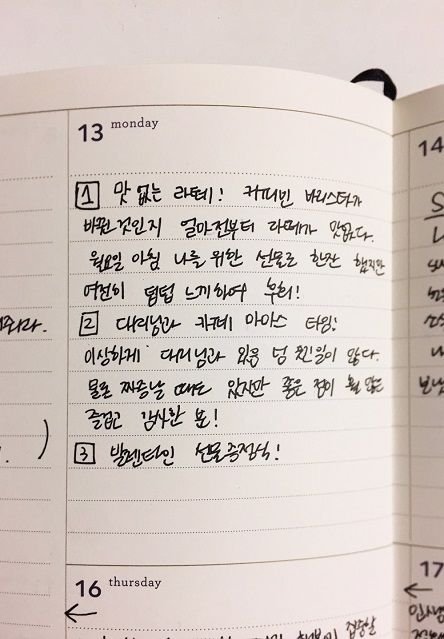 13 monday
14
1 맛 없는 라떼! 커피빈 바리스타가
바뀐것인지 얼마전부터 라떼가 맛없다.
월요일 아침 나를 위한 선물로 한잔 했지만
여전히 텁텁 느끼하여 후회!
2 대리님과 카페 아이스 타임!
이상하게 대리님과 있음 넘 일이 많다.
물론 짜증날 때도 있지만 좋은 점이 훨 많은
즐겁고 감사한 분!
3 발렌타인 선물증정식!
16 thursday
17